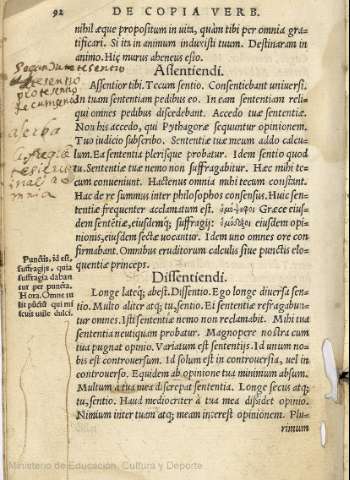 92 DE COPIA VERB.
nihil æque propositum in uita, quàm tibi per omnia gra-
tificari. Si ita in animum induxisti tuum. Destinaram in
animo. Hic murus abeneus esto.
Assentiendi.
Assentior tibi. Tecum sentio. Consentiebant uniuersi.
In tuam sententiam pedibus eo. In eam sententiam reli-
qui omnes pedibus discedebant. Accedo tuæ sententiæ.
Non his accedo, qui Pythagoræ sequuntur opinionem.
Tuo iudicio subscribo. Sententiæ tuæ meum addo calcu-
lum. Ea sententia plerisque probatur. Idem sentio quod
tu. Sententiæ tuæ nemo non suffragabitur. Hæc mihi te-
cum conueniunt. Hactenus omnia mihi tecum constant.
Hac de re summus inter philosophos consensus. Huic sen-
tentiæ frequenter acclamatum est. ὁμόψηφοι Græce eius-
dem sentētiæ, eiusdemq; suffragij: ὁμόδοξοι eiusdem opi-
nionis, eiusdem sectæ uocantur. Idem uno omnes ore con-
firmabant. Omnibus eruditorum calculis siue punctis elo-
quentiæ princeps.
Dissentiendi.
Longe lateq; abest. Dissentio. Ego longe diuersa sen-
tio. Multo aliter atq; tu, sentio. Ei sententiæ refragabun-
tur omnes. Isti sententiæ nemo non reclamabit. Mihi tua
sententia neutiquam probatur. Magnopere nostra cum
tua pugnat opinio. Variatum est sententijs. Id unum no-
bis est controuersum. Id solum est in controuersia, uel in
controuerso. Equidem ab opinione tua minimum absum.
Multum à tua mea discrepat sententia. Longe secus atq;
tu, sentio. Haud mediocriter à tua mea dissidet opinio.
Nimium inter tuam atq; meam interest opinionem. Plu-
rimum
Punctis, id est,
suffragijs, quia
suffragia daban
tur per puncta.
Hora. Omne tu
lit pūctū qui mi
scuit utile dulci.
uerba
omnia
Ministerio de Educación, Cultura y Deporte